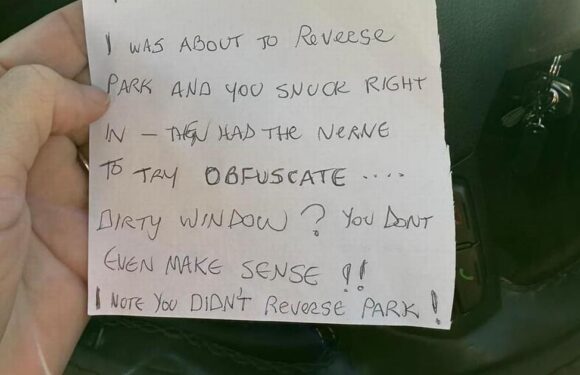 I WAS ABOUT TO REVEESE
PARK AND YOU SNUCK RIGHT
IN – THEN HAD THE NERNE
TO TRY OBFUSCATE ....
DIRTY WINDOW? YOU DONT
EVEN MAKE SENSE !!
I NOTE YOU DIDN'T REVERSE PARK!